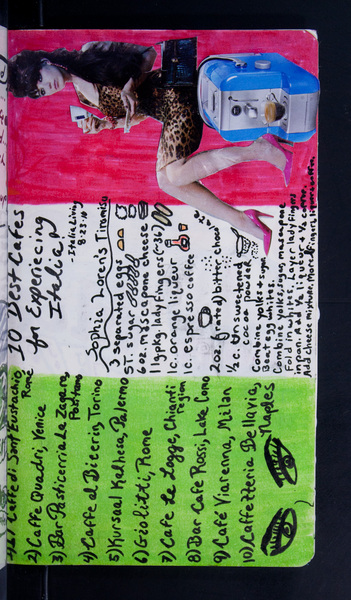 10 Best Cafes
for Experiecing
Italia
- Italia Living
8-23-10
Sophia Loren's Tiramisu
3 separated eggs
5 T. sugar
6 oz. mascapone cheese
1 lg. pkg lady fingers (~36)
1 c. orange liqueur
1 c. espresso coffee
2 oz. grated bitter choco
1/2 c. unsweetened
cocoa powder
Combine yolks + sugar
Beat egg whites.
Fold in whites. Layer ladyfingers
in pan.
Sant' Eustachio
Rome
2) Caffe Quadri, Venice
3) Bar Pasticerria La Zagara,
Positano
4) Caffe al Bicerin, Torino
5) Kursaal Kalhesa, Palermo
6) Giolitti, Rome
7) Cafe Le Logge, Chianti
region
8) Bar Cafe Rossi, Lake Como
9) Café Viarenna, Milan
10) Caffetteria Bellavia,
Naples